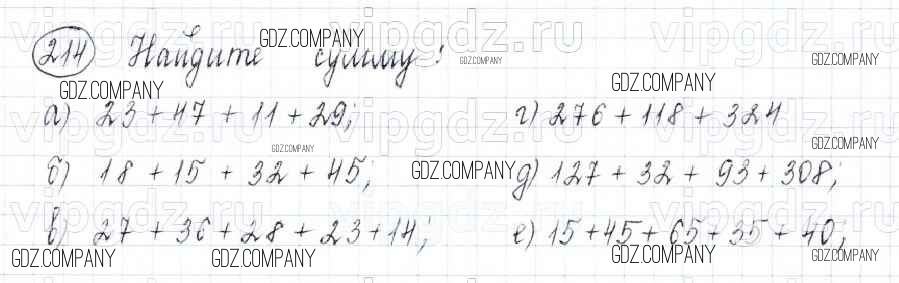 214 Найдите сумму:
а) 23+47+11+29;
б) 18+15+32+45;
в) 27+36+28+23+14;
г) 276+118+324
д) 127+32+93+308;
е) 15+45+65+35+40;
GDZ.COMPANY
GDZ.COMPANY
GDZ.COMPANY
GDZ.COMPANY
GDZ.COMPANY
GDZ.COMPANY
GDZ.COMPANY
GDZ.COMPANY
GDZ.COMPANY
GDZ.COMPANY
GDZ.COMPANY
GDZ.COMPANY
GDZ.COMPANY
vipgdz.ru
vipgdz.ru
vipgdz.ru
vipgdz.ru
vipgdz.ru
vipgdz.ru